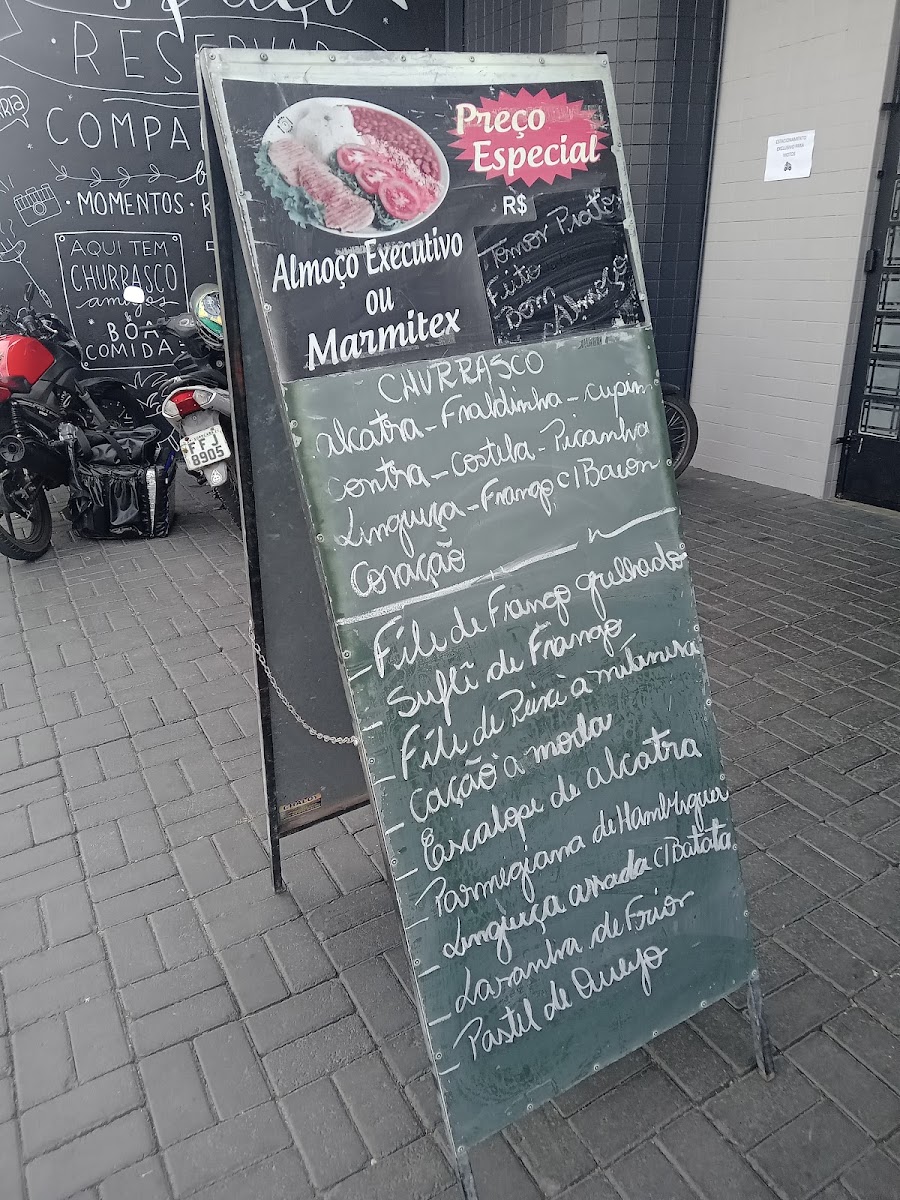 RESERVA
COMPA
MOMENTOS · R
AQUI TEM
CHURRASCO
amigos
BOA
COMIDA
Preço
Especial
R$
Temos Prato
Feito
Bom
Almoço
Almoço Executivo
ou
Marmitex
CHURRASCO
alcatra - Fraldinha - cupim
contra - costela - Picanha
Linguiça - Frango c/ Bacon
Coração
- File de Frango grelhado
- Suflê de Frango
- File de Peixe a milanesa
- Cação a moda
- Escalope de alcatra
- Parmegiana de Hambúrguer
- Linguiça assada c/ Batata
- Lasanha de Frios
- Pastel de Queijo
FFJ
8905
ESTACIONAMENTO
EXCLUSIVO PARA
MOTOS